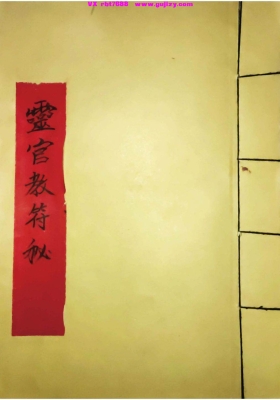 VX rht7088 www.gojlzy.com
靈官教符秘